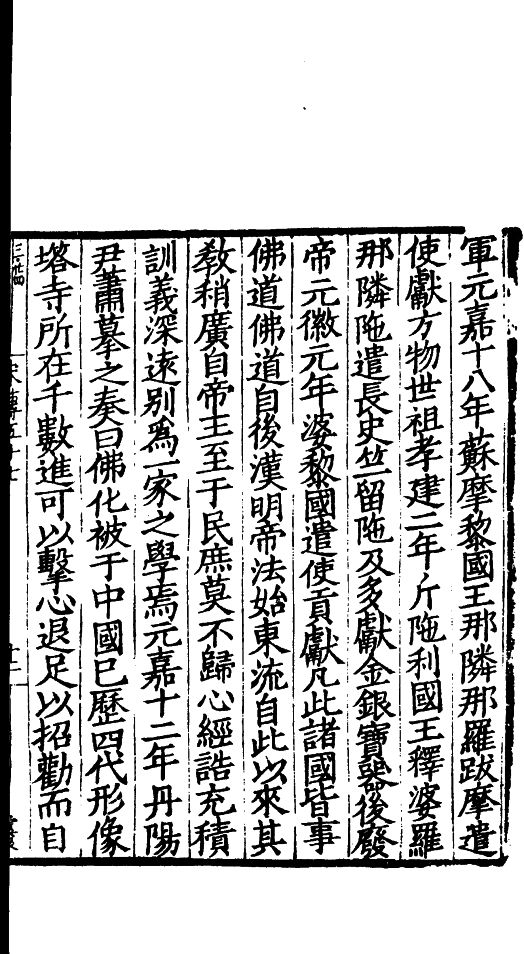 軍元嘉十八年蘇摩黎國王那隣那羅跋摩遣
使獻方物世祖孝建二年斤陁利國王釋婆羅
那隣陁遣長史竺留陁及多獻金銀寶器後廢
帝元徽元年婆黎國遣使貢獻凡此諸國皆事
佛道佛道自後漢明帝法始東流自此以來其
敎稍廣自帝王至于民庶莫不歸心經誥充積
訓義深遠別爲一家之學焉元嘉十二年丹陽
尹蕭摹之奏曰佛化被于中國巳歷四代形像
塔寺所在千數進可以擊心退足以招勸而自